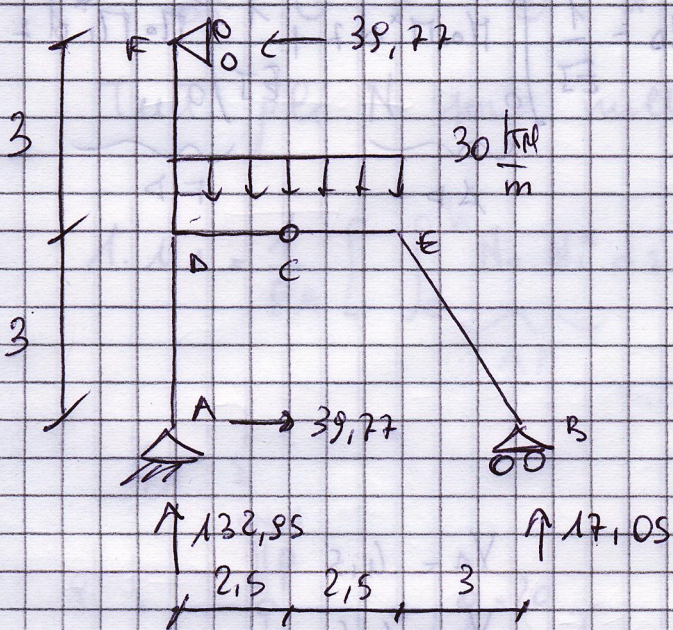 F ← 39,77
3
30 kN/m
D C E
3
A → 39,77
B
↑ 132,95
↑ 17,05
2,5 2,5 3